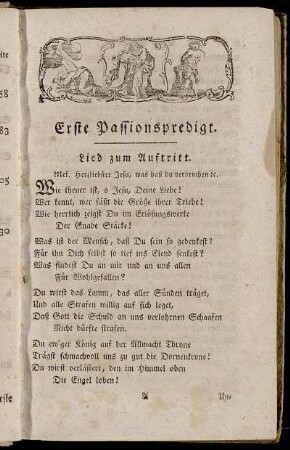 Erste Passionspredigt.
Lied zum Auftritt.
Mel. Herzliebster Jesu, was hast du verbrochen ꝛc.
Wie theuer ist, o Jesu, Deine Liebe!
Wer kennt, wer faßt die Größe ihrer Triebe!
Wie herrlich zeigst Du im Erlösungswerke
Der Gnade Stärke!
Was ist der Mensch, daß Du sein so gedenkest?
Für ihn Dich selbst so tief ins Elend senkest?
Was findest Du an mir und an uns allen
Für Wohlgefallen?
Du wirst das Lamm, das aller Sünden träget,
Und alle Strafen willig auf sich leget,
Daß Gott die Schuld an uns verlohrnen Schaafen
Nicht dürfte strafen.
Du ew'ger König auf der Allmacht Throne
Trägst schmachvoll uns zu gut die Dornenkrone!
Du wirst verlästert, den im Himmel oben
Die Engel loben!
A
58
83